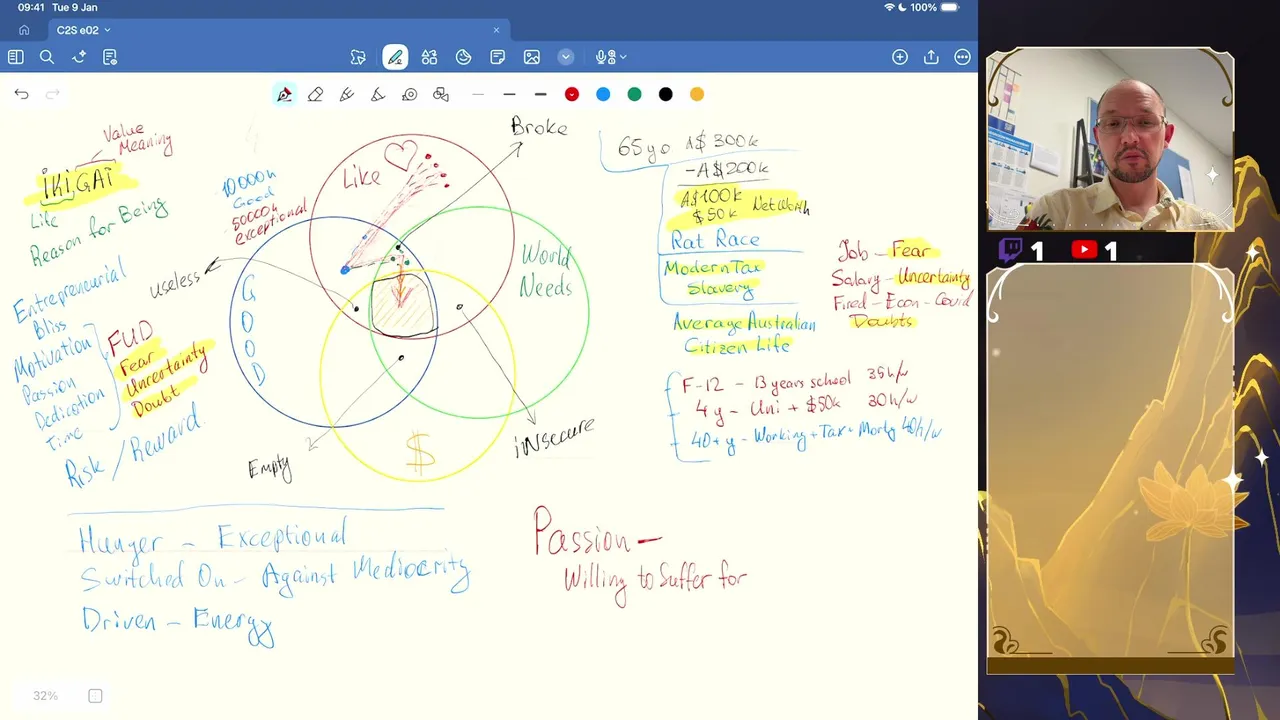 09:41 Tue 9 Jan
100%
C2S e02
Value
Meaning
iKiGAi
Life
Reason for Being
Entrepreneurial
Bliss
Motivation
Passion
Dedication
Time
Risk / Reward
FUD
Fear
Uncertainty
Doubt
10000h
Good
50000h
exceptional
useless
Like
GOOD
World
Needs
$
Broke
iNsecure
Empty
65yo A$300k
-A$200k
A$100k
$50k Net Worth
Rat Race
Modern Tax
Slavery
Average Australian
Citizen Life
Job - Fear
Salary - Uncertainty
Fired - Econ - Covid
Doubts
F-12 - 13 years school 35h/w
4y - Uni + $50k 30h/w
40+y - Working + Tax + Mortg 40h/w
Hunger - Exceptional
Switched On - Against Mediocrity
Driven - Energy
Passion -
Willing to Suffer for
32%
1
1